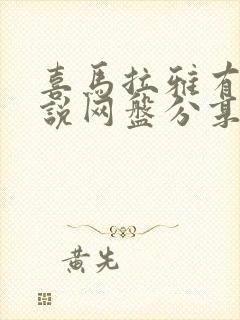 喜馬拉雅有
說网盤分享
黃先